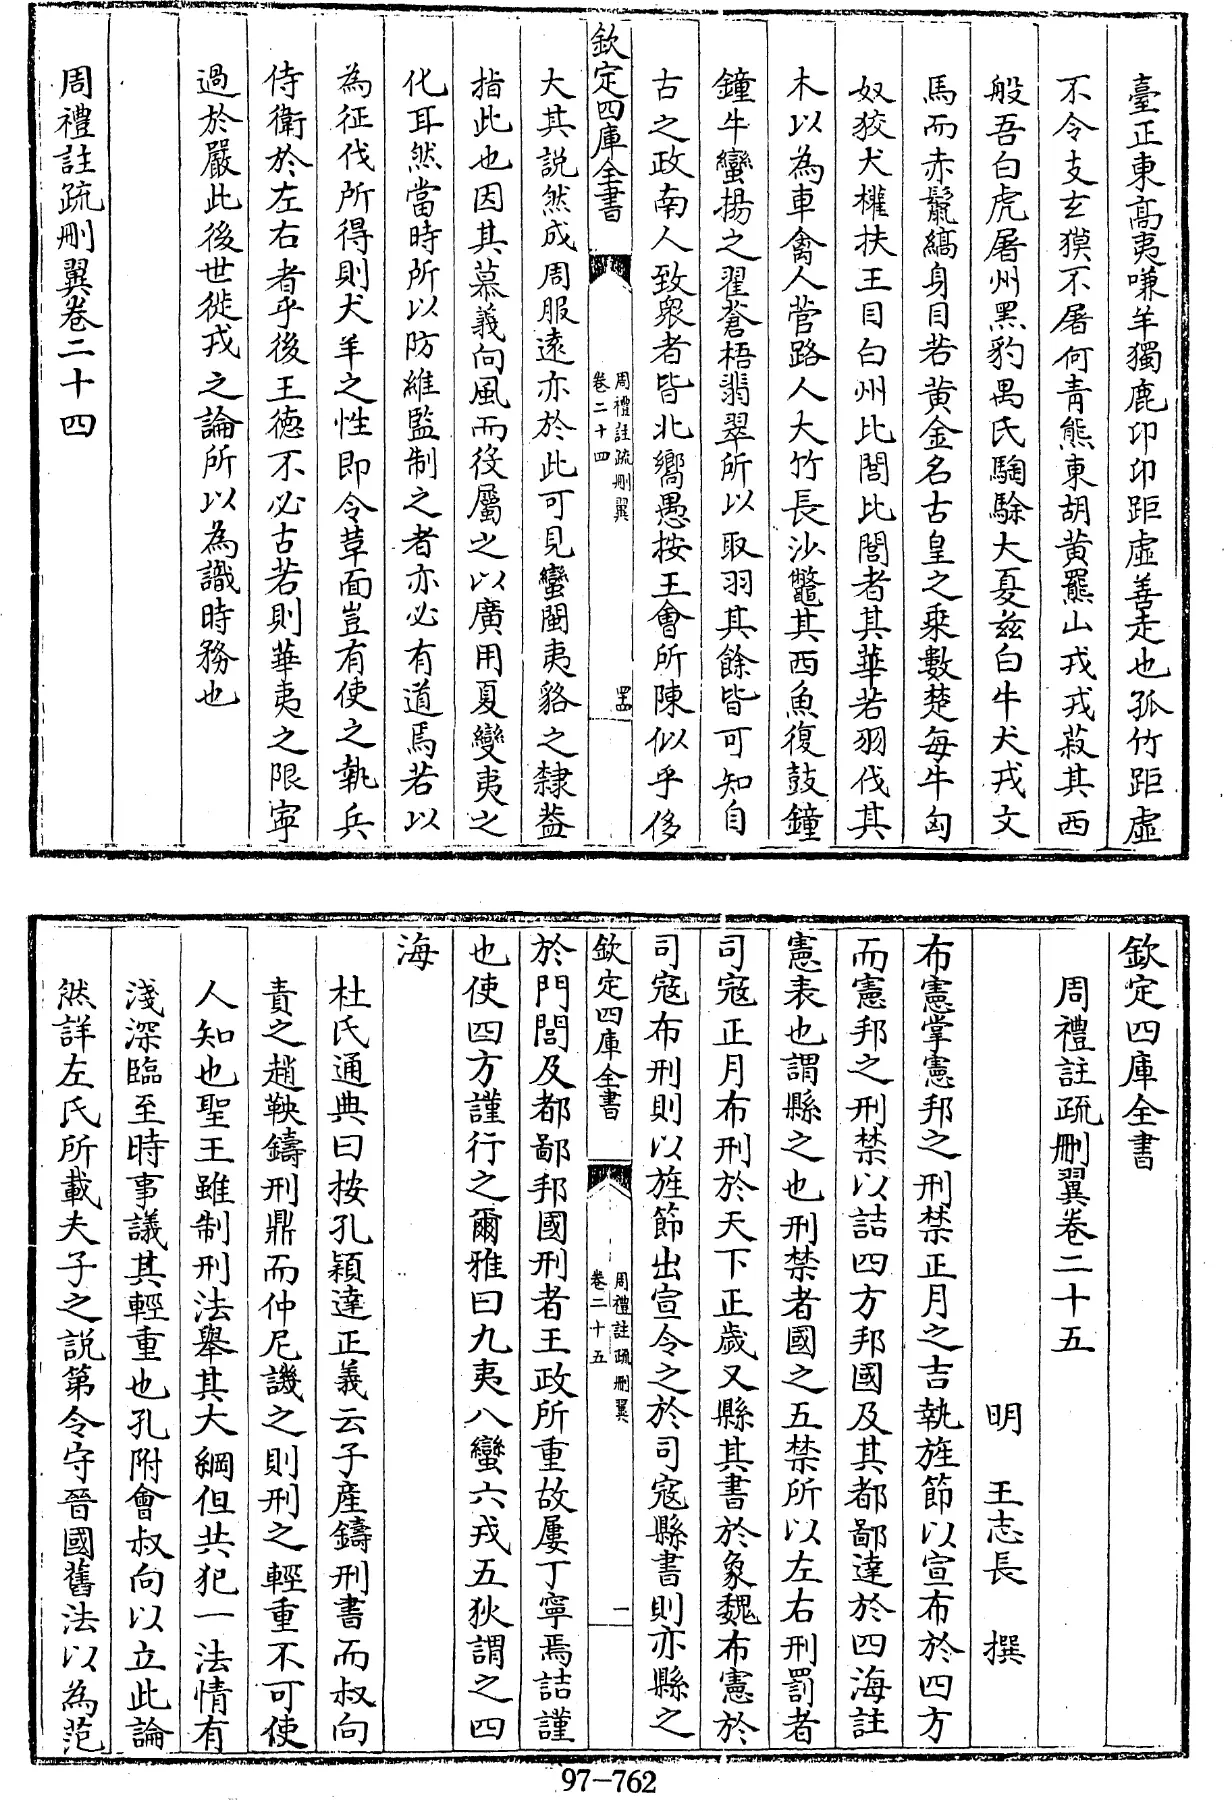 臺正東高夷嗛羊獨鹿卭卭距虛善走也孤竹距虛
不令支玄獏不屠何青熊東胡黃羆山戎戎菽其西
般吾白虎屠州黑豹禺氏騊駼大夏兹白牛犬戎文
馬而赤鬛縞身目若黃金名古皇之乗數楚每牛匈
奴狡犬權扶王目白州比閭比閭者其華若羽伐其
木以為車禽人菅路人大竹長沙鼈其西魚復鼓鐘
鐘牛蠻揚之翟蒼梧翡翠所以取羽其餘皆可知自
古之政南人致衆者皆北嚮愚按王會所陳似乎侈
欽定四庫全書
周禮註疏刪翼
卷二十四
大其說然成周服遠亦於此可見蠻閩夷貉之隸葢
指此也因其慕義向風而役屬之以廣用夏變夷之
化耳然當時所以防維監制之者亦必有道焉若以
為征伐所得則犬羊之性即令草面豈有使之執兵
侍衛於左右者乎後王德不必古若則華夷之限寧
過於嚴此後世徙戎之論所以為識時務也
周禮註疏刪翼卷二十四
欽定四庫全書
周禮註疏刪翼卷二十五
明 王志長 撰
布憲掌憲邦之刑禁正月之吉執旌節以宣布於四方
而憲邦之刑禁以詰四方邦國及其都鄙達於四海註
憲表也謂縣之也刑禁者國之五禁所以左右刑罰者
司寇正月布刑於天下正歲又縣其書於象魏布憲於
司寇布刑則以旌節出宣令之於司寇縣書則亦縣之
欽定四庫全書
周禮註疏刪翼
卷二十五
一
於門閭及都鄙邦國刑者王政所重故屢丁寧焉詰謹
也使四方謹行之爾雅曰九夷八蠻六戎五狄謂之四
海
杜氏通典曰按孔穎達正義云子產鑄刑書而叔向
責之趙鞅鑄刑鼎而仲尼譏之則刑之輕重不可使
人知也聖王雖制刑法舉其大綱但共犯一法情有
淺深臨至時事議其輕重也孔附會叔向以立此論
然詳左氏所載夫子之說第令守晉國舊法以為范
97-762